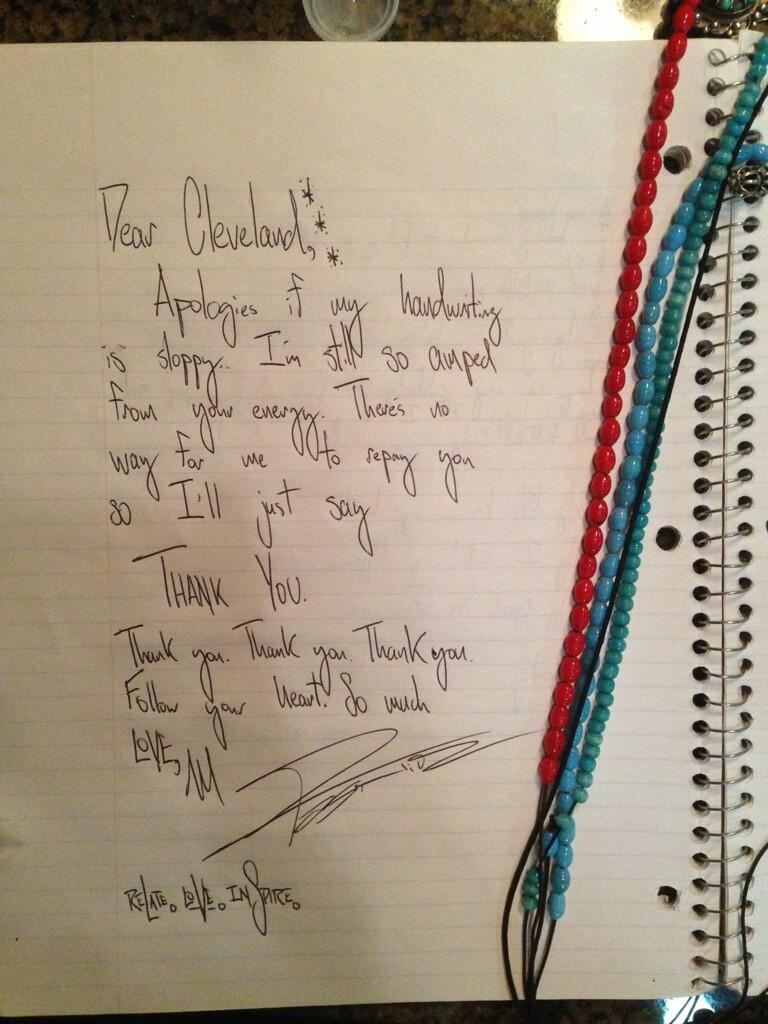 Dear Cleveland,***
Apologies if my handwriting
is sloppy.. I'm still so amped
from your energy. There's no
way for me to repay you
so I'll just say
THANK YOU.
Thank you. Thank you. Thank you.
Follow your heart. So much
LOVE, M
RELATE. LOVE. INSPIRE.